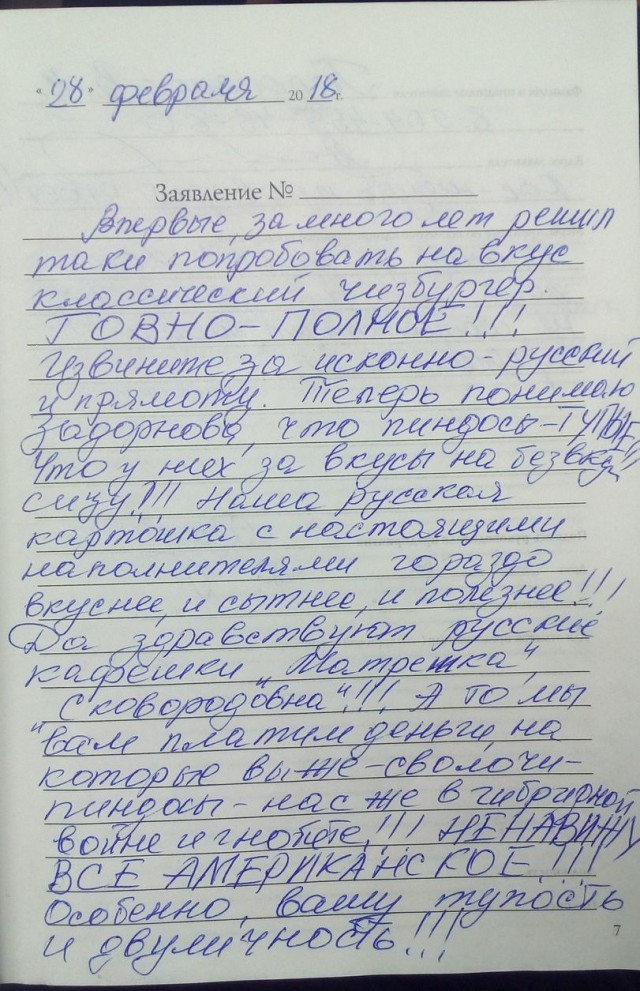 "28" февраля 2018г.
Заявление №
Впервые, за много лет решил
таки попробовать на вкус
классический чизбургер.
ГОВНО-ПОЛНОЕ!!!
Извините за исконно-русский
и прямоту. Теперь понимаю
Задорнова, что пиндосы-ТУПЫЕ
Что у них за вкусы на безвку
сицу!!! Наша русская
картошка с настоящими
наполнителями гораздо
вкуснее, и сытнее, и полезнее!!!
Да здравствуют русские
кафешки „Матрешка",
„Сковородовна"!!! А то мы
вам платим деньги, на
которые вы же-сволочи-
пиндосы-нас же в гибридной
войне и гнобите!!! НЕНАВИЖУ
ВСЕ АМЕРИКАНСКОЕ!!!
Особенно, вашу тупость
и двуличность!!!
7